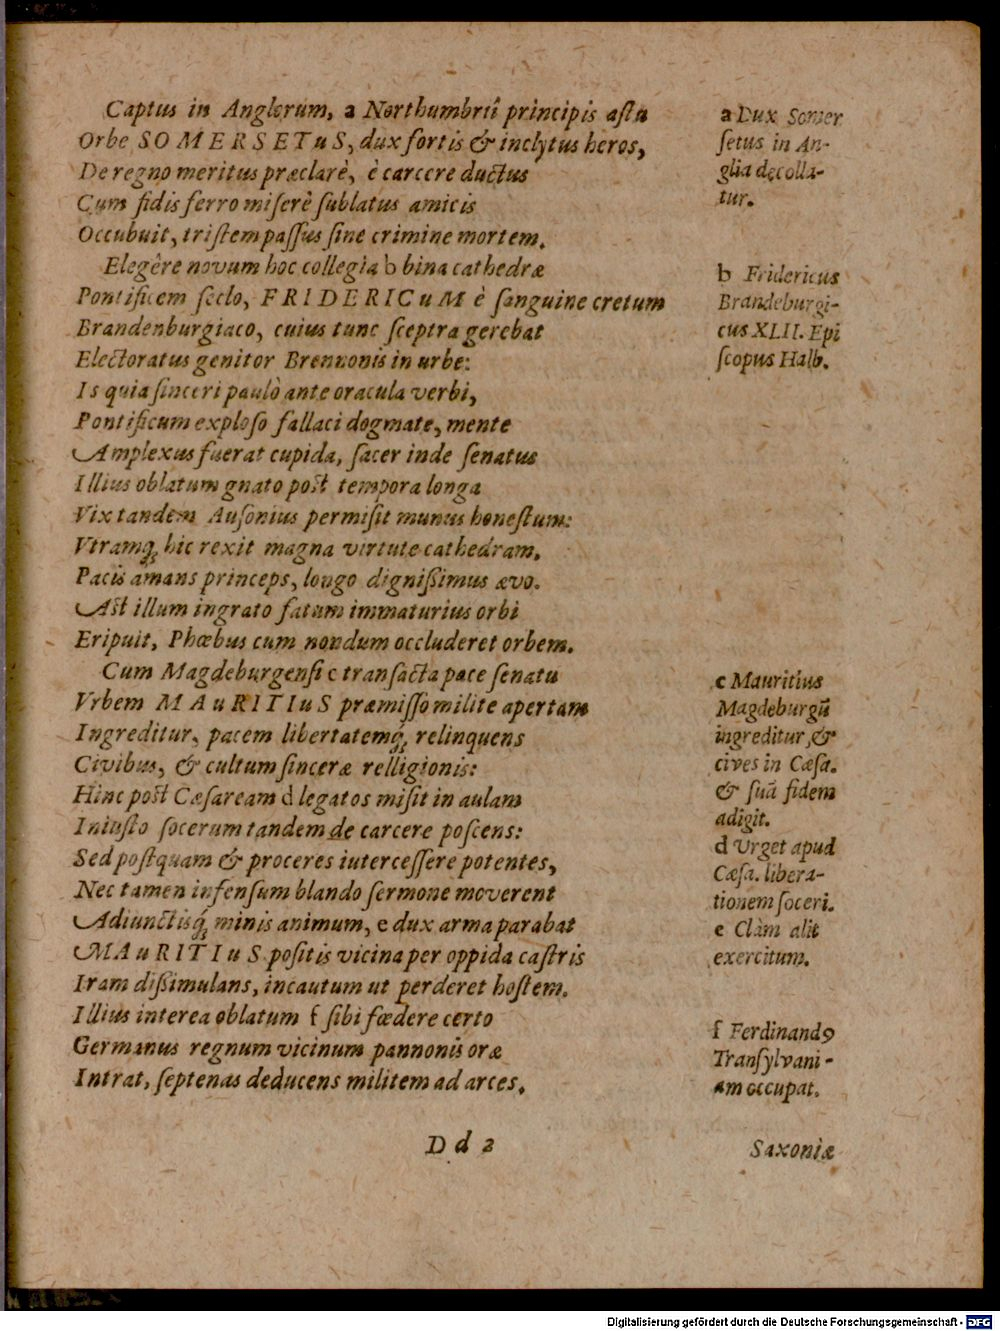 Captus in Anglorum, a Northumbrii principis astu
Orbe SOMERSETuS, dux fortis & inclytus heros,
De regno meritus præclarè, è carcere ductus
Cum fidis ferro miserè sublatus amicis
Occubuit, tristem passus sine crimine mortem.
Elegêre novum hoc collegia b bina cathedræ
Pontificem seclo, FRIDERICuM è sanguine cretum
Brandenburgiaco, cuius tunc sceptra gerebat
Electoratus genitor Brennonis in urbe:
Is quia sinceri paulò ante oracula verbi,
Pontificum exploso fallaci dogmate, mente
Amplexus fuerat cupida, sacer inde senatus
Illius oblatum gnato post tempora longa
Vix tandem Ausonius permisit munus honestum:
Vtramq; hic rexit magna virtute cathedram,
Pacis amans princeps, longo dignissimus ævo.
Ast illum ingrato fatum immaturius orbi
Eripuit, Phœbus cum nondum occluderet orbem.
Cum Magdeburgensi c transacta pace senatu
Vrbem MAuRITIuS præmisso milite apertam
Ingreditur, pacem libertatemq; relinquens
Civibus, & cultum sinceræ relligionis:
Hinc post Cæsaream d legatos misit in aulam
Iniusto socerum tandem de carcere poscens:
Sed postquam & proceres intercessere potentes,
Nec tamen infensum blando sermone moverent
Adiunctisq; minis animum, e dux arma parabat
MAuRITIuS positis vicina per oppida castris
Iram dissimulans, incautum ut perderet hostem.
Illius interea oblatum f sibi fœdere certo
Germanus regnum vicinum pannonis oræ
Intrat, septenas deducens militem ad arces.
Dd 2
Saxoniæ
a Dux Somer
setus in An-
glia decolla-
tur.
b Fridericus
Brandeburgi-
cus XLII. Epi
scopus Halb.
c Mauritius
Magdeburgū
ingreditur, &
cives in Cæsa.
& suā fidem
adigit.
d Vrget apud
Cæsa. libera-
tionem soceri.
e Clàm alit
exercitum.
f Ferdinandꝰ
Transylvani-
am occupat.
Digitalisierung gefördert durch die Deutsche Forschungsgemeinschaft - DFG